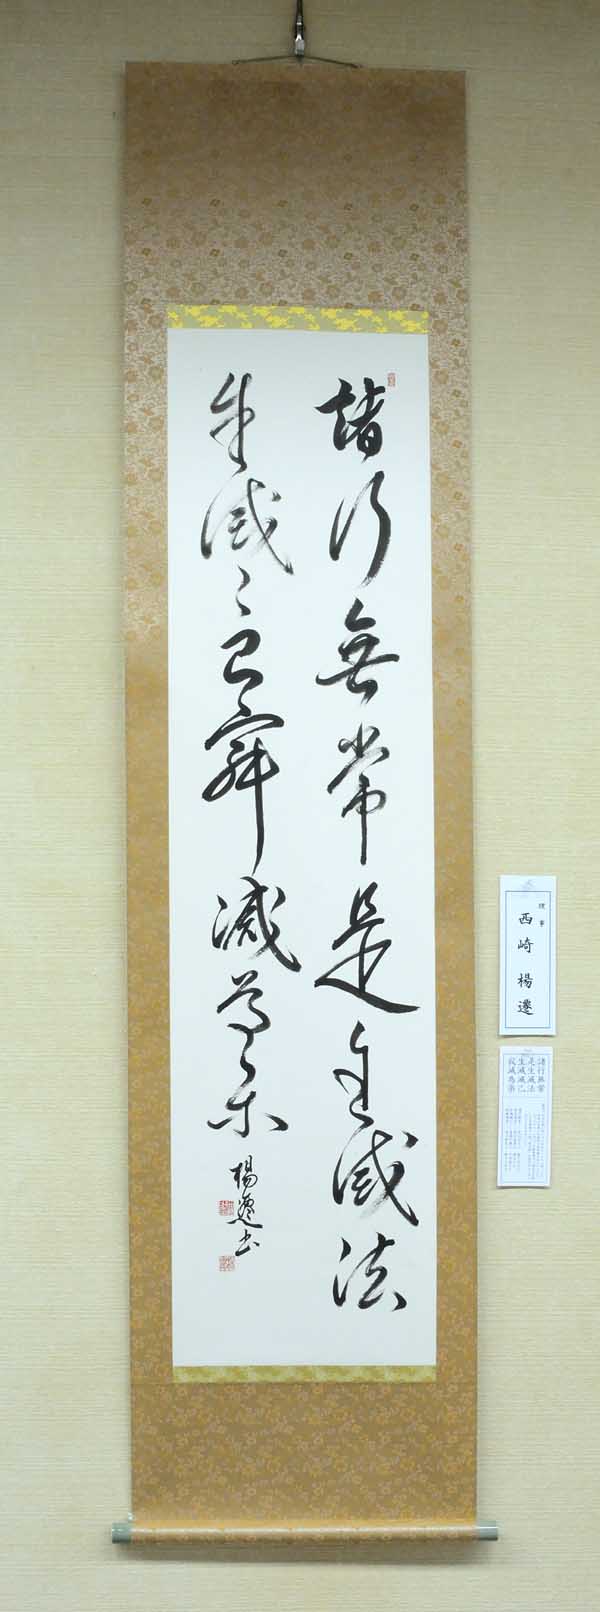 諸行無常是生滅法
生滅〻已寂滅為楽
楊邊書
理事
西崎 楊邊
諸行無常
是生滅法
生滅滅已
寂滅為楽